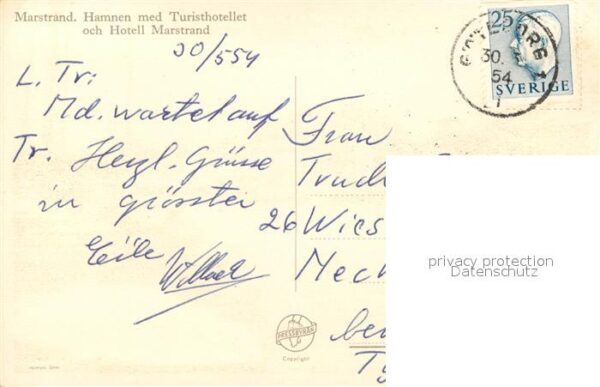 Marstrand. Hamnen med Turisthotellet
och Hotell Marstrand
30/5 54
L. Tr:
Md. wartet auf
Tr. Herzl. Grüsse
in grösster
Eile
Frau
Trud
26 Wies
Mech
bei
25
SVERIGE
GÖTEBORG 1
30.
54
PRESSBYRÅN
Copyright
privacy protection
Datenschutz